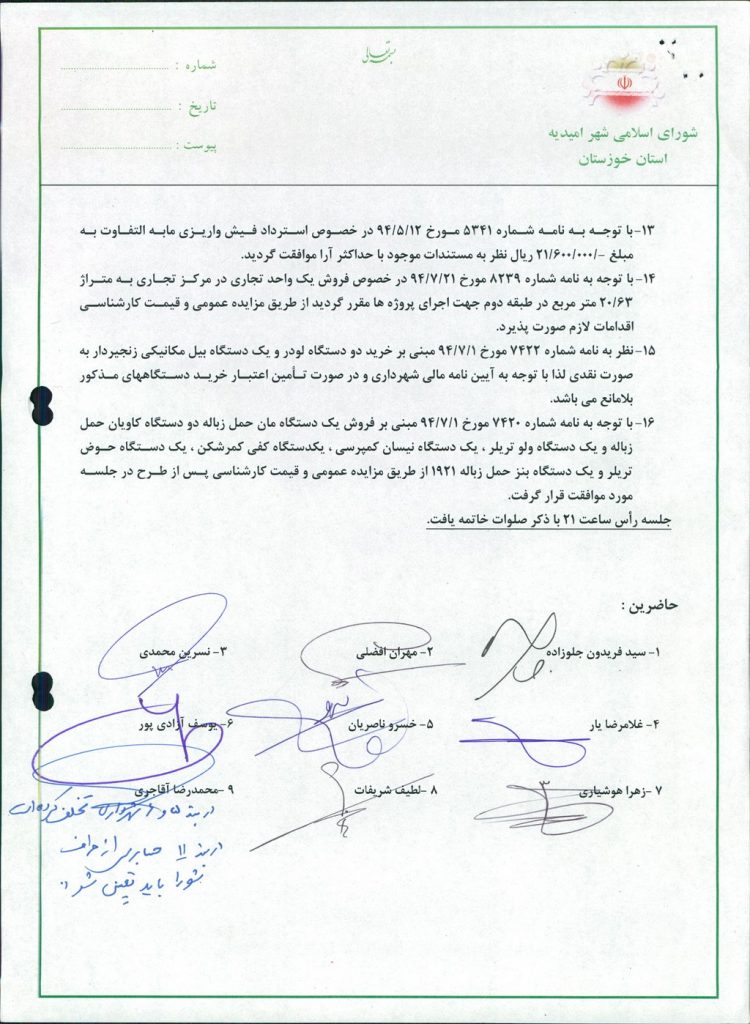 بسمه تعالی
شورای اسلامی شهر امیدیه
استان خوزستان
شماره :
تاریخ :
پیوست :
۱۳- با توجه به نامه شماره ۵۳۴۱ مورخ ۹۴/۵/۱۲ در خصوص استرداد فیش واریزی مابه التفاوت به
مبلغ -/۲۱/۶۰۰/۰۰۰ ریال نظر به مستندات موجود با حداکثر آرا موافقت گردید.
۱۴- با توجه به نامه شماره ۸۲۳۹ مورخ ۹۴/۷/۲۱ در خصوص فروش یک واحد تجاری در مرکز تجاری به متراژ
۲۰/۶۳ متر مربع در طبقه دوم جهت اجرای پروژه ها مقرر گردید از طریق مزایده عمومی و قیمت کارشناسی
اقدامات لازم صورت پذیرد.
۱۵- نظر به نامه شماره ۷۴۲۲ مورخ ۹۴/۷/۱ مبنی بر خرید دو دستگاه لودر و یک دستگاه بیل مکانیکی زنجیردار به
صورت نقدی لذا با توجه به آیین نامه مالی شهرداری و در صورت تأمین اعتبار خرید دستگاههای مذکور
بلامانع می باشد.
۱۶- با توجه به نامه شماره ۷۴۲۰ مورخ ۹۴/۷/۱ مبنی بر فروش یک دستگاه مان حمل زباله دو دستگاه کاویان حمل
زباله و یک دستگاه ولو تریلر ، یک دستگاه نیسان کمپرسی ، یکدستگاه کفی کمرشکن ، یک دستگاه حوض
تریلر و یک دستگاه بنز حمل زباله ۱۹۲۱ از طریق مزایده عمومی و قیمت کارشناسی پس از طرح در جلسه
مورد موافقت قرار گرفت.
جلسه رأس ساعت ۲۱ با ذکر صلوات خاتمه یافت.
حاضرین :
۱- سید فریدون جلوزاده ۲- مهران افضلی ۳- نسرین محمدی
۴- غلامرضا یار ۵- خسرو ناصریان ۶- یوسف آزادی پور
۷ -زهرا هوشیاری ۸ -لطیف شریفات ۹ -محمدرضا آقاجری
در بند ۵ و ۶ تخلف کرده‌اند
در بند ۱۱ از طرف
شورا باید تعیین شود